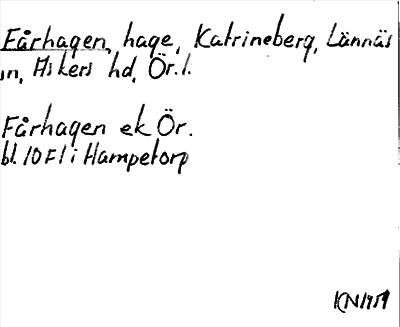 Fårhagen, hage, Katrineberg, Lännäs
sn, Askers hd, Ör. l.
Fårhagen ek Ör.
bl. 10 F1 i Hampetorp
KN 1959